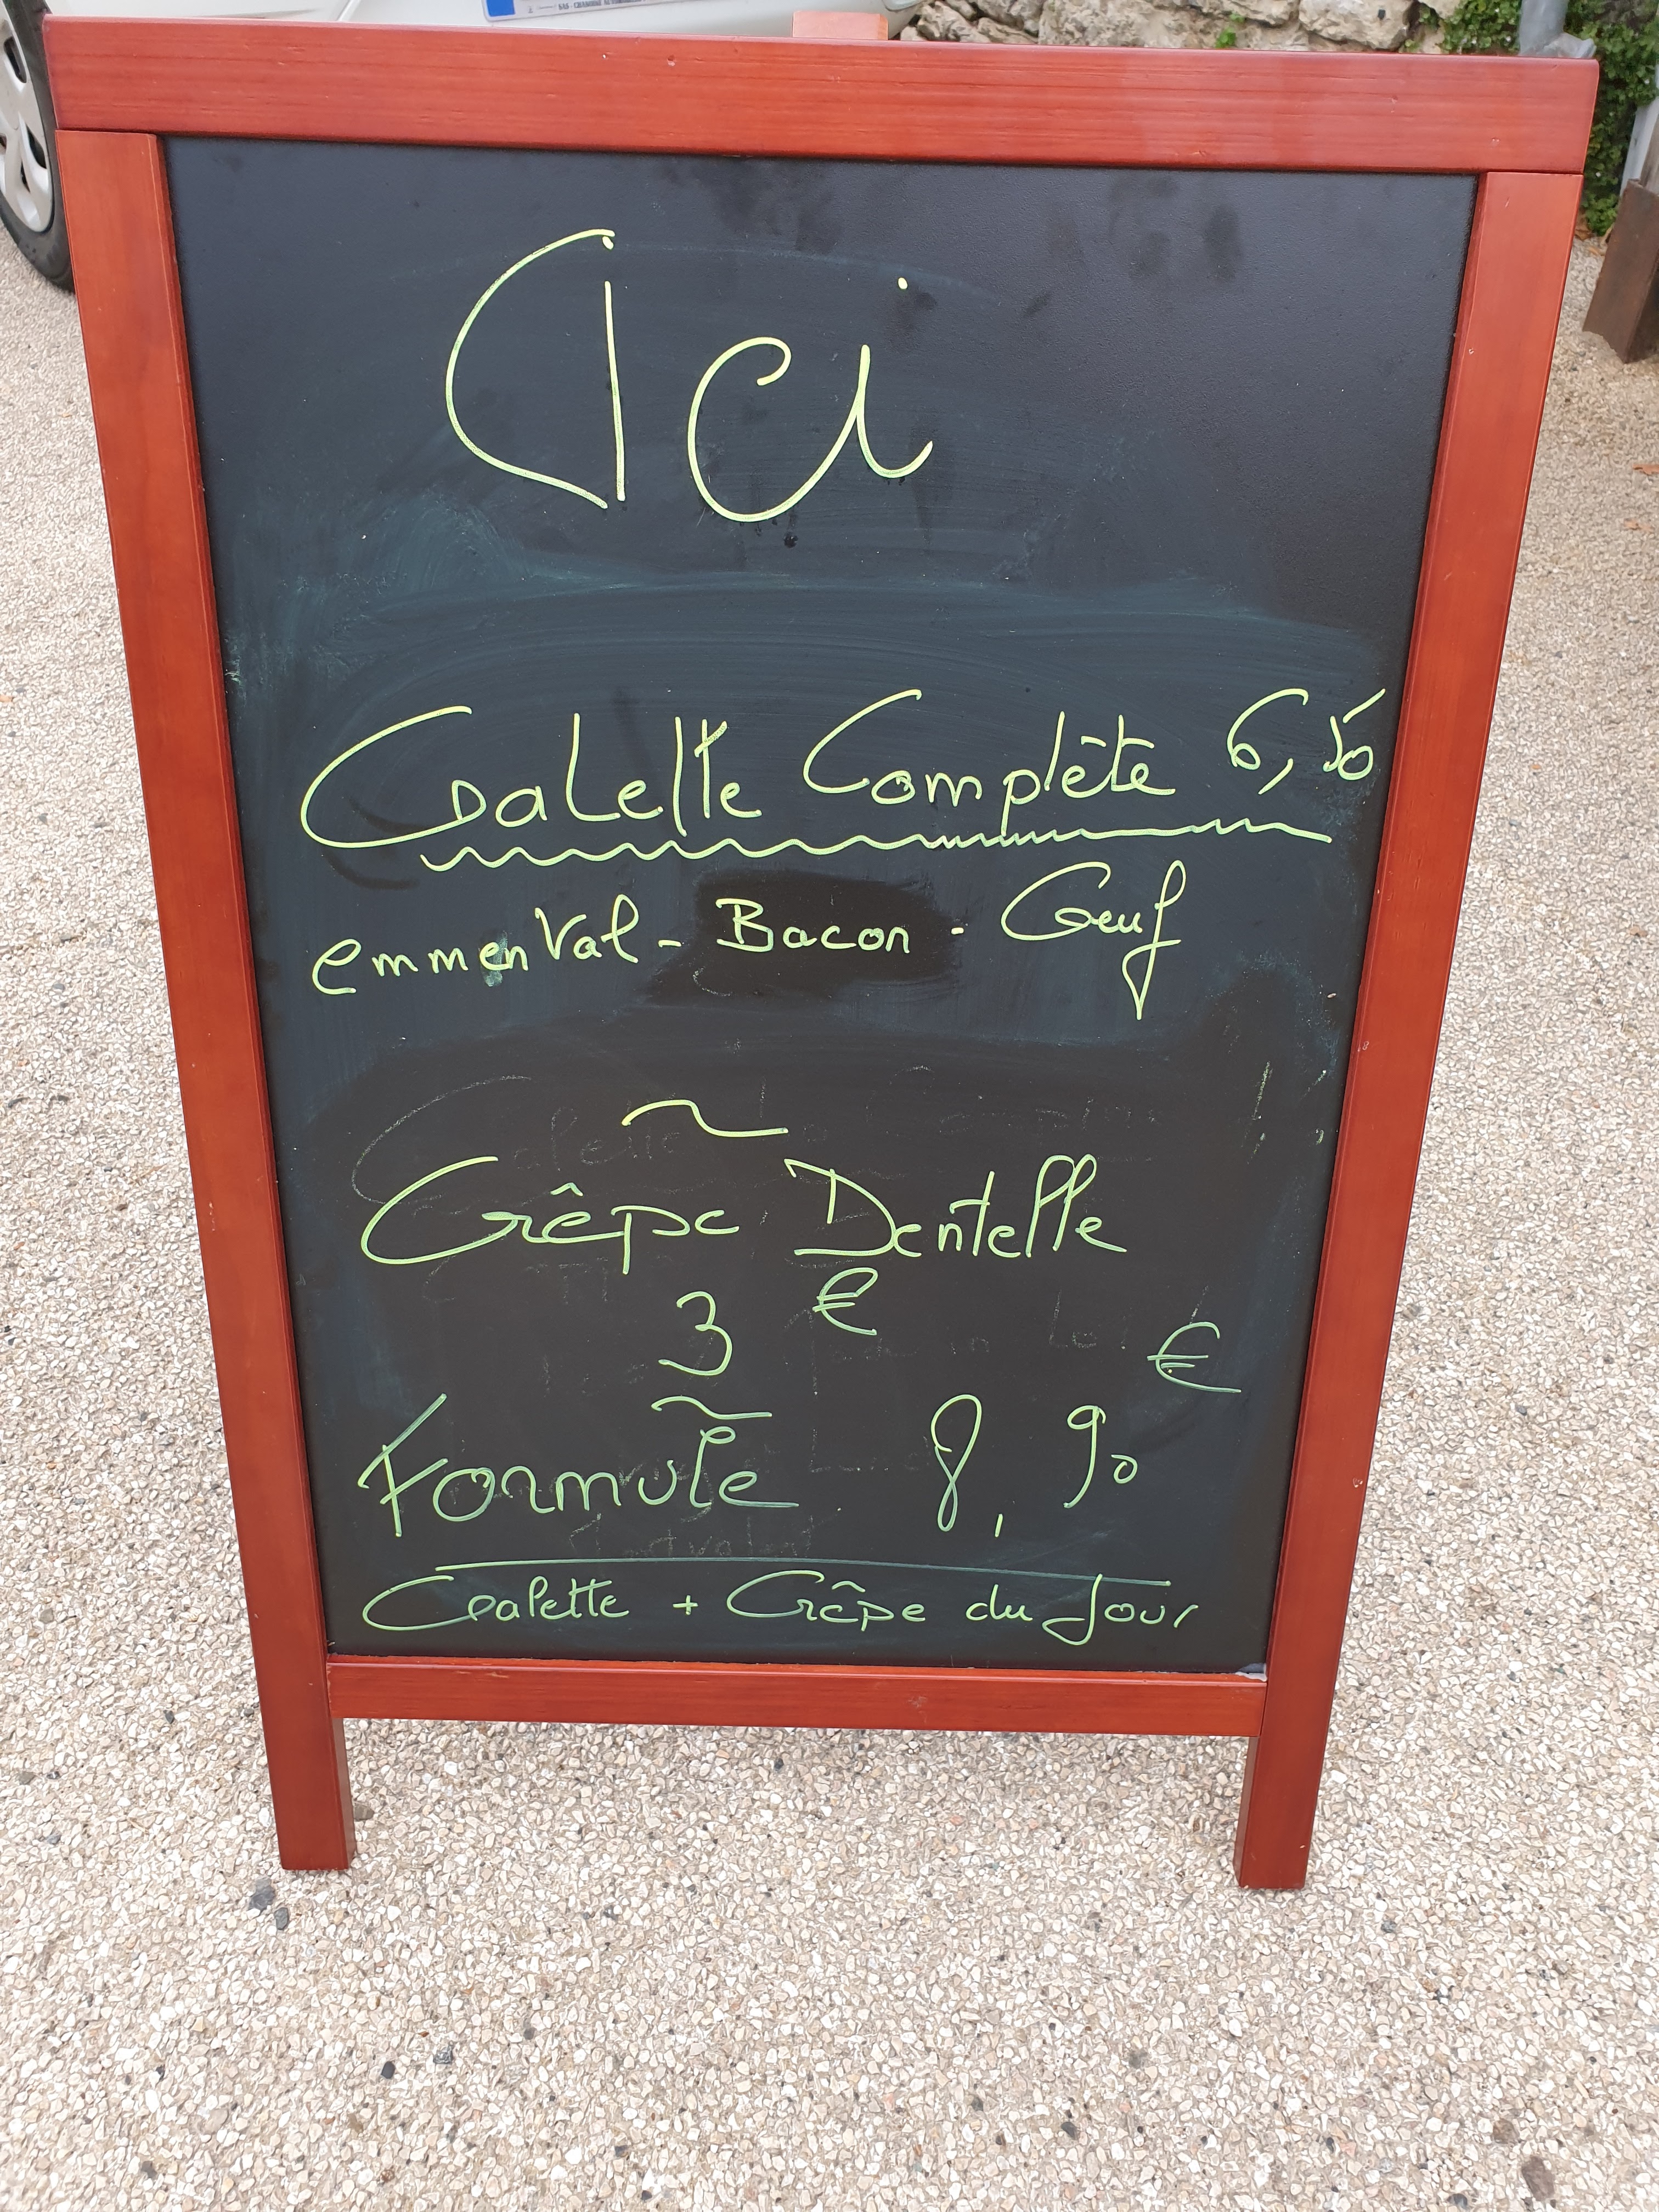 Ici
Galette Complète 6,50
emmental - Bacon - Oeuf
~
Crêpe Dentelle
3 €
~
Formule 8,90 €
Galette + Crêpe du Jour